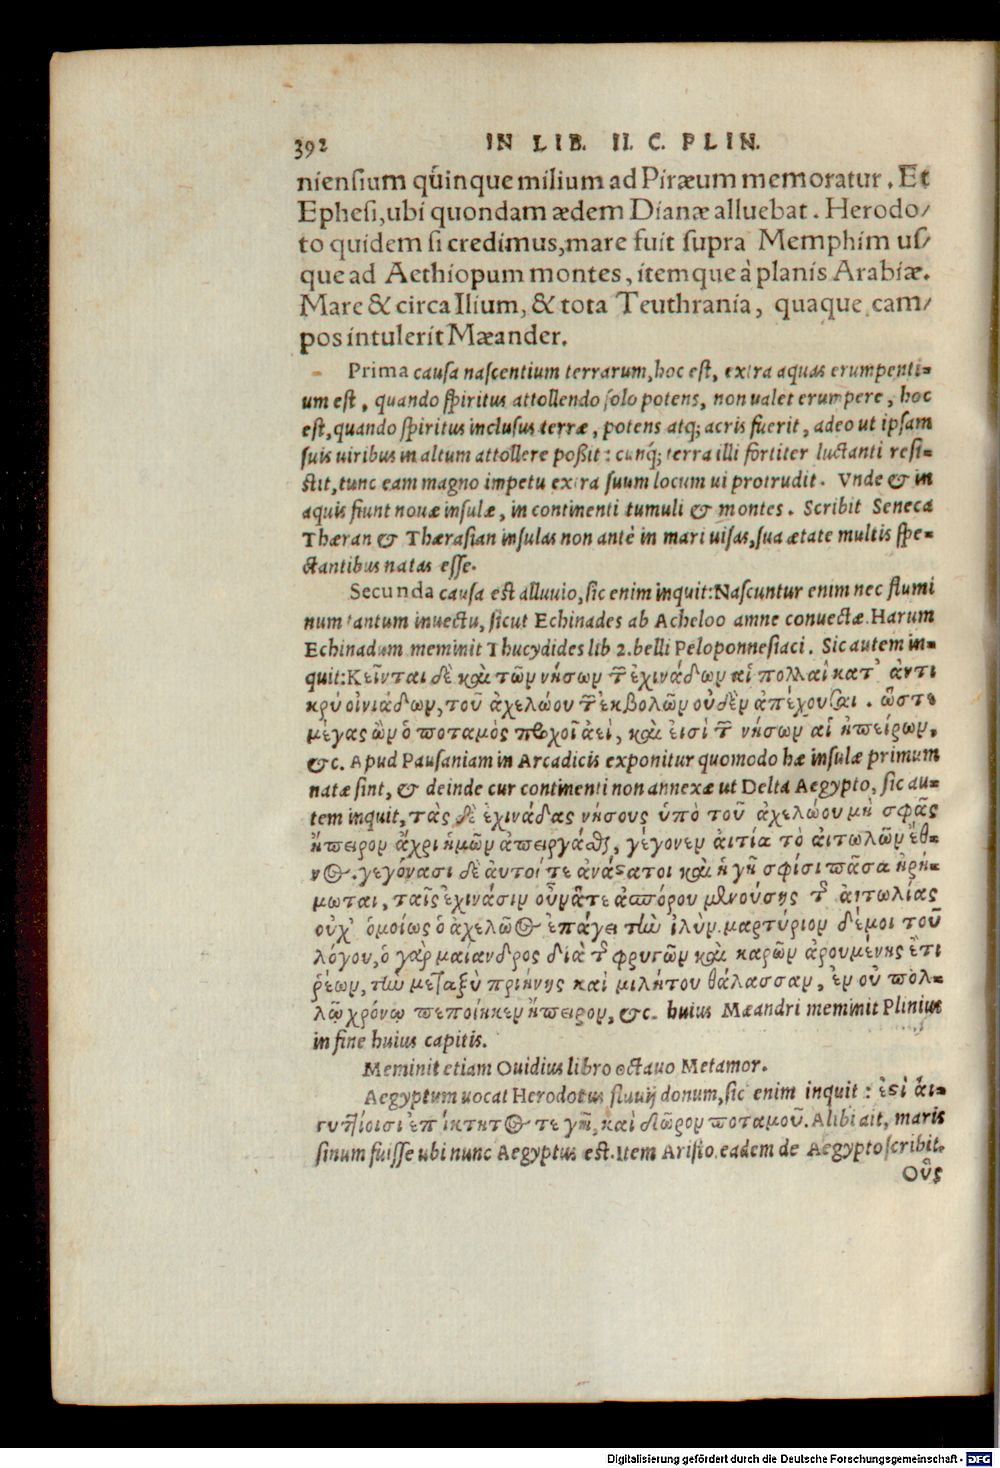 392 IN LIB. II. C. PLIN.
niensium quinque milium ad Piræum memoratur. Et
Ephesi, ubi quondam ædem Dianæ alluebat. Herodo/
to quidem si credimus, mare fuit supra Memphim us/
que ad Aethiopum montes, itemque à planis Arabiæ.
Mare & circa Ilium, & tota Teuthrania, quaque cam/
pos intulerit Mæander.
Prima causa nascentium terrarum, hoc est, extra aquas erumpenti-
um est, quando spiritus attollendo solo potens, non valet erumpere, hoc
est, quando spiritus inclusus terræ, potens atq; acris fuerit, adeo ut ipsam
suis uiribus in altum attollere poßit: cunq́; terra illi fortiter luctanti resi-
stit, tunc eam magno impetu extra suum locum ui protrudit. Vnde & in
aquis fiunt nouæ insulæ, in continenti tumuli & montes. Scribit Seneca
Thæran & Thærasian insulas non antè in mari uisas, sua ætate multis spe-
ctantibus natas esse.
Secunda causa est alluuio, sic enim inquit: Nascuntur enim nec flumi
num tantum inuectu, sicut Echinades ab Acheloo amne conuectæ. Harum
Echinadum meminit Thucydides lib 2. belli Peloponnesiaci. Sic autem in-
quit: Κεῖνται δὲ καὶ τῶν νήσων τῶν ἐχινάδων αἱ πολλαὶ κατ' ἀντι
κρὺ οἰνιάδων, τοῦ ἀχελώου τῶν ἐκβολῶν οὐδὲν ἀπέχουσαι. ὥστε
μέγας ὢν ὁ ποταμὸς προσχοῖ ἀεὶ, καὶ εἰσὶ τῶν νήσων αἳ ἠπείρων,
&c. Apud Pausaniam in Arcadicis exponitur quomodo hæ insulæ primum
natæ sint, & deinde cur continenti non annexæ ut Delta Aegypto, sic au-
tem inquit, τὰς δὲ ἐχινάδας νήσους ὑπὸ τοῦ ἀχελώου μὴ σφᾶς
ἤπειρον ἄχρι ἡμῶν ἀπειργάσθαι, γέγονεν αἰτία τὸ αἰτωλῶν ἔθ-
νος. γεγόνασι δὲ αὐτοί τε ἀνάστατοι καὶ ἡ γῆ σφίσι πᾶσα ἠρή-
μωται, ταῖς ἐχινάσιν οὖν ἅτε ἀσπόρου μενούσης τῆς αἰτωλίας
οὐχ ὁμοίως ὁ ἀχελῶος ἐπάγει τὴν ἰλύν. μαρτύριον δέ μοι τοῦ
λόγου, ὁ γὰρ μαίανδρος διὰ τῆς φρυγῶν καὶ καρῶν ἀρουμένης ἔτι
ῥέων, τὴν μεταξὺ πριήνης καὶ μιλήτου θάλασσαν, ἐν οὐ πολ-
λῷ χρόνῳ πεποίηκεν ἤπειρον, &c. huius Mæandri meminit Plinius
in fine huius capitis.
Meminit etiam Ouidius libro octauo Metamor.
Aegyptum uocat Herodotus fluuij donum, sic enim inquit: ἐστὶ αἰ-
γυπτίοισι ἐπίκτητος τε γῆ, καὶ δῶρον ποταμοῦ. Alibi ait, maris
sinum fuisse ubi nunc Aegyptus est. Item Aristo. eadem de Aegypto scribit.
Οὓς
Digitalisierung gefördert durch die Deutsche Forschungsgemeinschaft - DFG